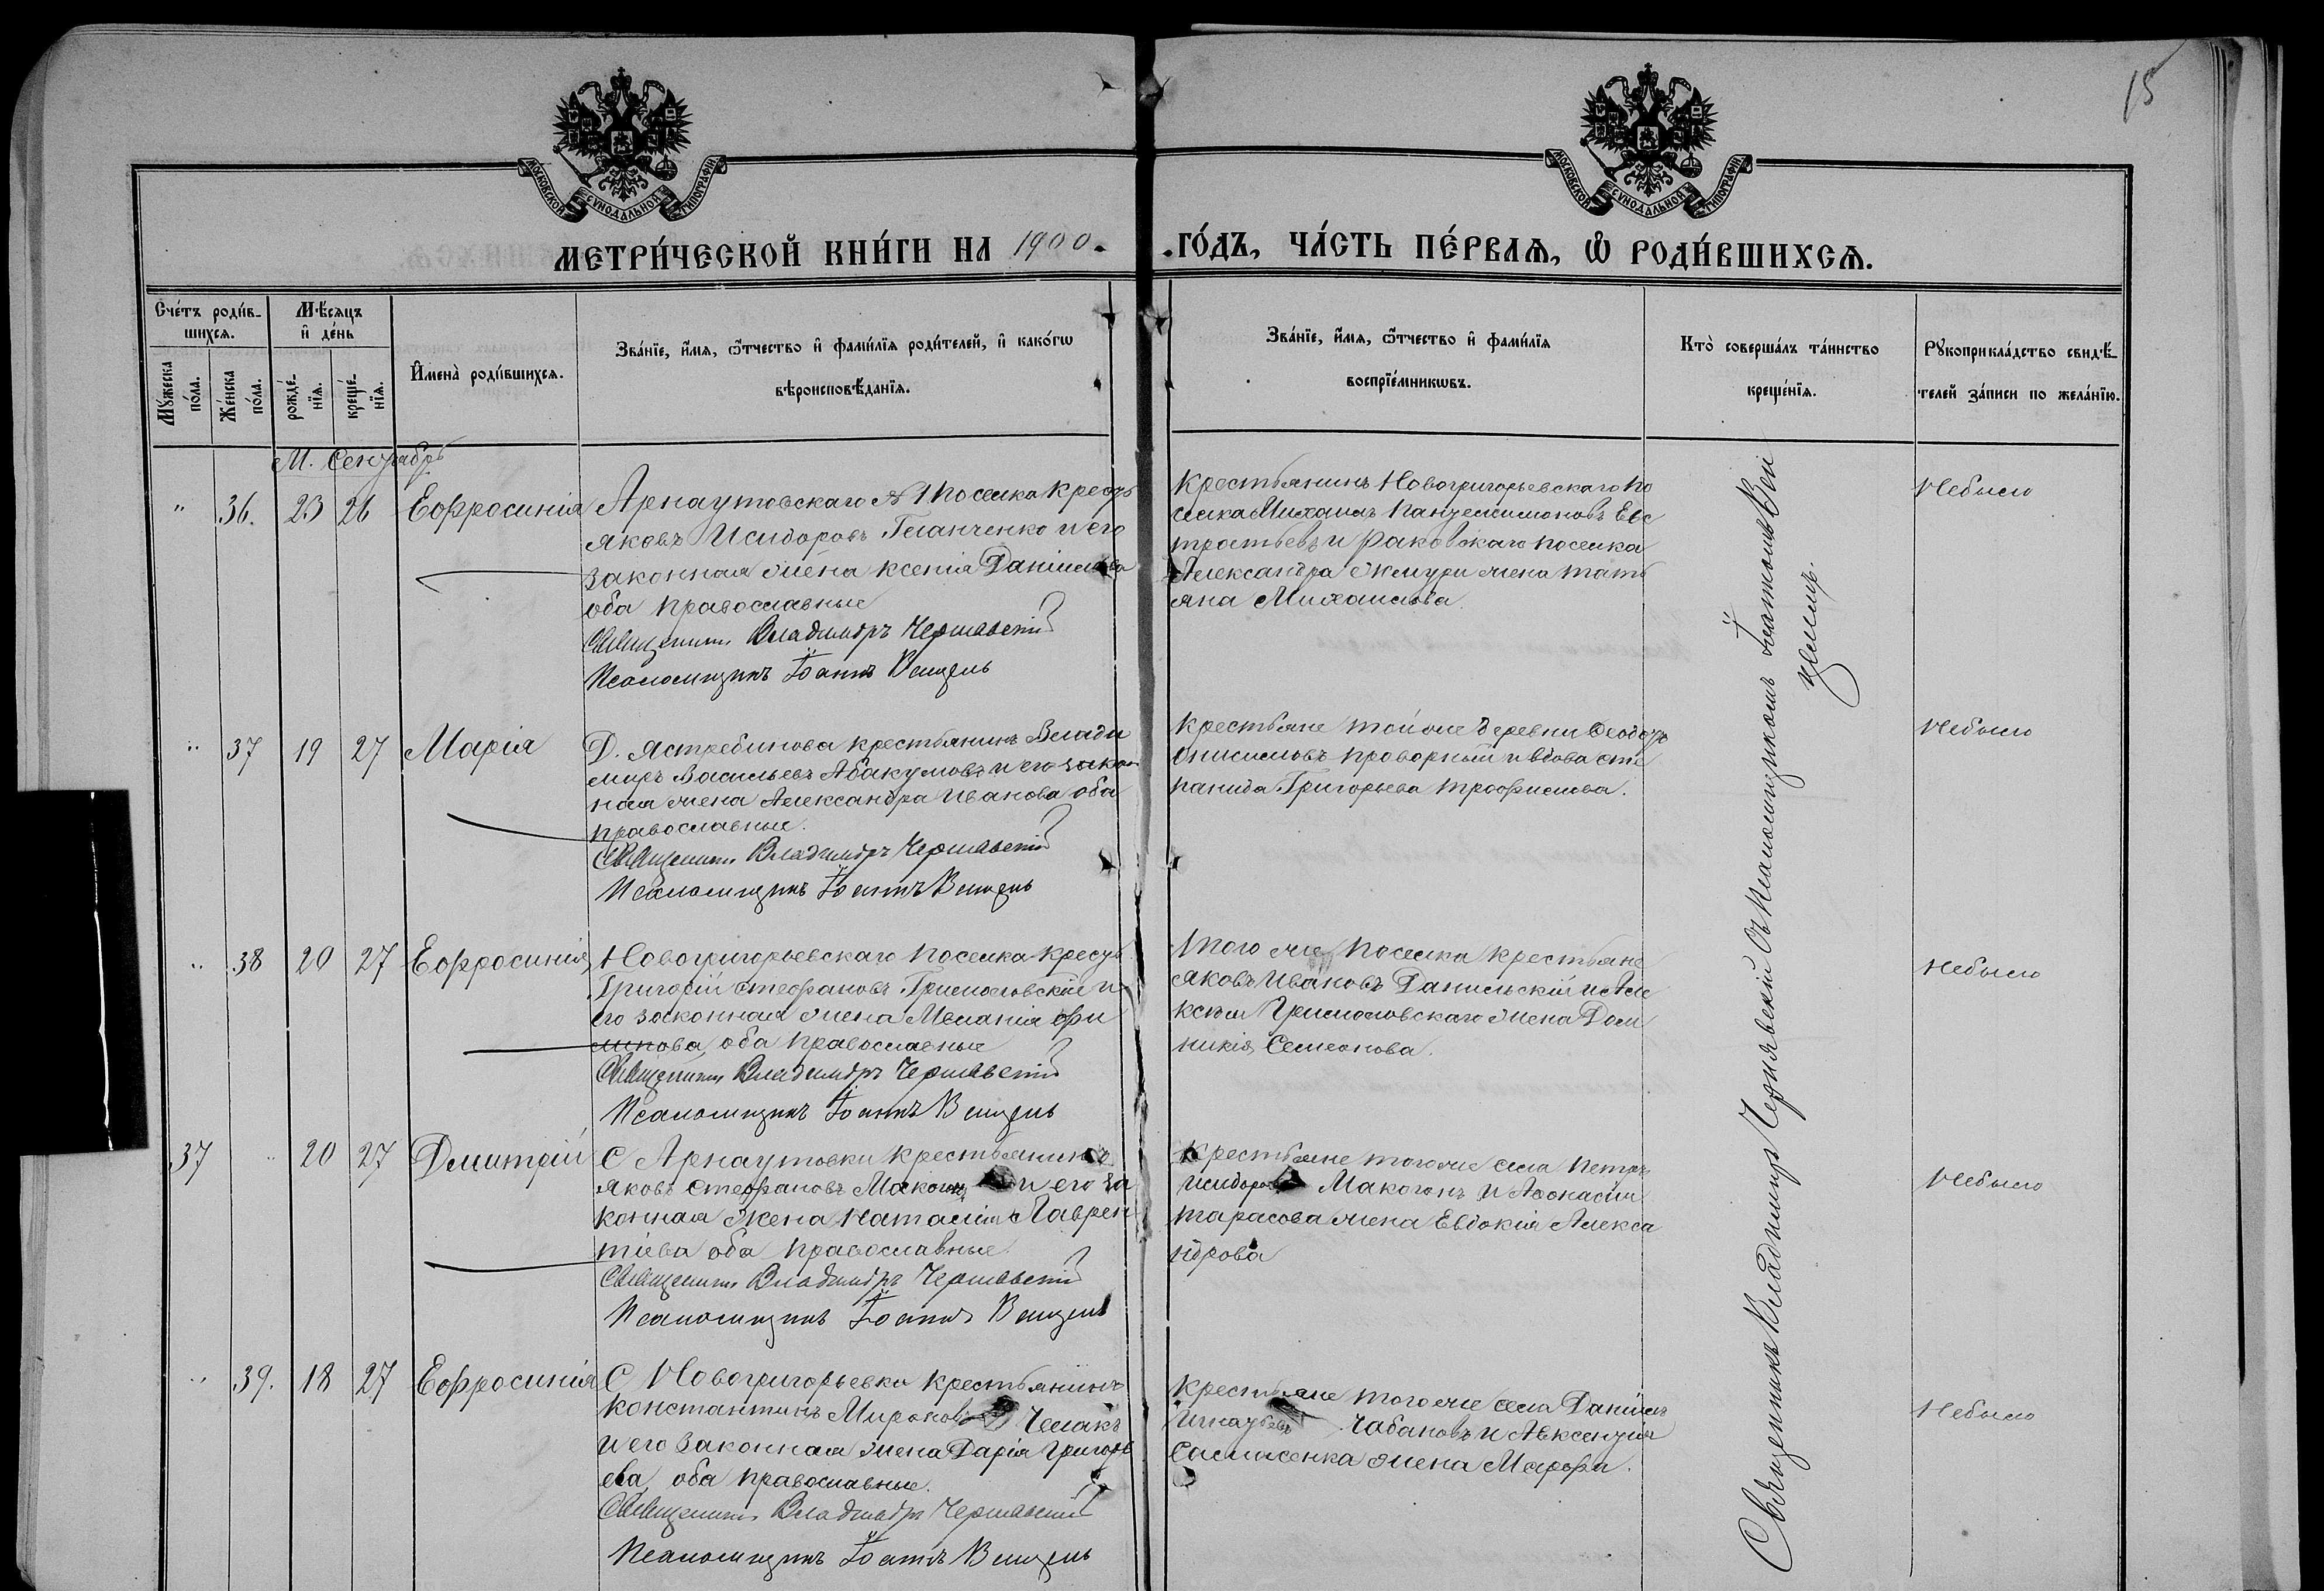 15
МОСКОВСКОЙ СѴНОДАЛЬНОЙ ТИПОГРАФІИ
МОСКОВСКОЙ СѴНОДАЛЬНОЙ ТИПОГРАФІИ
МЕТРИ́ЧЕСКОЙ КНИ́ГИ НА 1900. ГО́ДЪ, ЧА́СТЬ ПЕ́РВАѦ, Ѡ҆ РОДИ́ВШИХСѦ.
Сче́тъ роди́в-
шихсѧ.
Мꙋ́жеска
по́ла.
Же́нска
по́ла.
Мѣ́сяцъ
и҆ де́нь
рожде́-
нїѧ.
креще́-
нїѧ.
И҆мена̀ роди́вшихсѧ.
Зва́нїе, и҆́мѧ, ѻ҆́тчество и҆ фами́лїѧ роди́телей, и҆ како́гѡ
вѣроисповѣ́данїѧ.
Зва́нїе, и҆́мѧ, ѻ҆́тчество и҆ фами́лїѧ
воспрїе́мникѡвъ.
Кто̀ соверша́лъ та́инство
креще́нїѧ.
Рꙋкоприкла́дство свидѣ́-
телей за́писи по жела́нїю.
М. Сентябрь
" 36. 23 26 Евфросинія
Арнаутовскаго № 1 поселка Крест.
Яковъ Исидоровъ Ганченко и его
законная жена Ксенія Даніилова
оба православные
Священникъ Владиміръ Чернявскій
Псаломщикъ Іоаннъ
Крестьянинъ Новогригорьевскаго по
селка Михаилъ Пантелеимоновъ Евс
тратьевъ и Раковскаго поселка
Александра жена Тать
яна Михаилова
Небыло
" 37 19 27 Марія
Д. Ястребинова крестьянинъ Влади
миръ Васильевъ Абакумовъ и его закон
ная жена Александра Иванова оба
православные.
Священникъ Владиміръ Чернявскій
Псаломщикъ Іоаннъ
Крестьяне той же деревни Ѳеодоръ
Онисимовъ Проворный и вдова Сте
панида Григорьева Трофимова.
Небыло
" 38 20 27 Евфросинія
Новогригорьевскаго поселка Крест.
Григорій Стефановъ и
его законная жена Меланія Фи
липова, оба православные
Священникъ Владиміръ Чернявскій
Псаломщикъ Іоаннъ
Того же поселка крестьяне
Яковъ Ивановъ Данильскій и Але
ксѣя жена Дом
никія Семеонова.
Небыло
37 " 20 27 Дмитрій
С Арнаутовки крестьянинъ
Яковъ Стефановъ Макогонъ и его за
конная жена Наталія Лаврен
тіева оба православные.
Священникъ Владиміръ Чернявскій
Псаломщикъ Іоаннъ
Крестьяне того же села Петръ
Исидоровъ Макогонъ и Афонасія
Тарасова жена Евдокія Алекса
ндрова
Небыло
" 39. 18 27 Евфросинія
С Новогригорьевки крестьянинъ
Константинъ Мироновъ Чемакъ
и его законная жена Дарія Григорь
ева, оба православные.
Священникъ Владиміръ Чернявскій
Псаломщикъ Іоаннъ
Крестьяне того же села Даніилъ
Игнатьевъ Чабановъ и Авксентія
жена Марфа.
Небыло
Священникъ Владиміръ Чернявскій съ Псаломщикомъ Іоанномъ